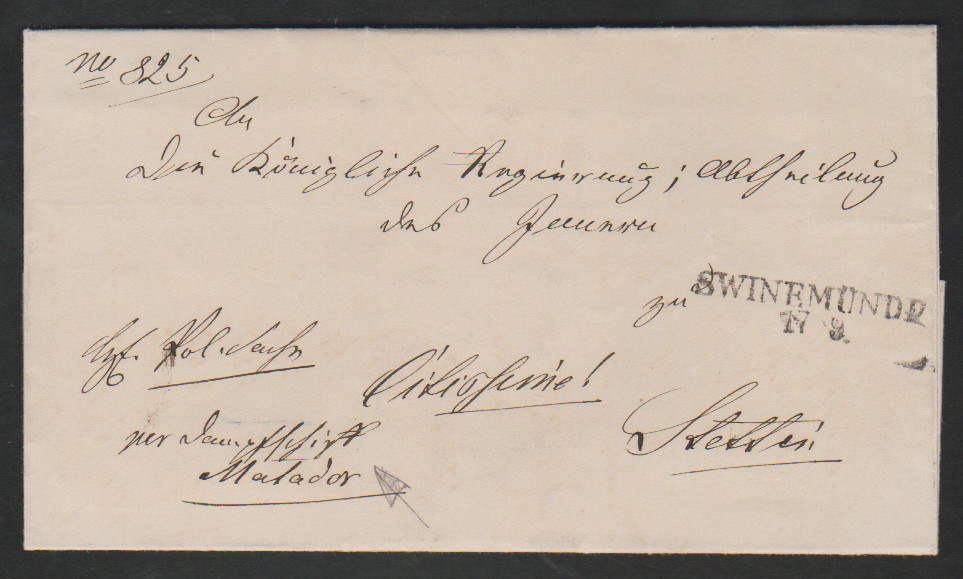 no 325
An
Die Königliche Regierung; Abtheilung
des Innern
zu
SWINEMÜNDE
17 9.
Pol. Sache
Citissime!
Stettin
per Dampfschiff
Matador